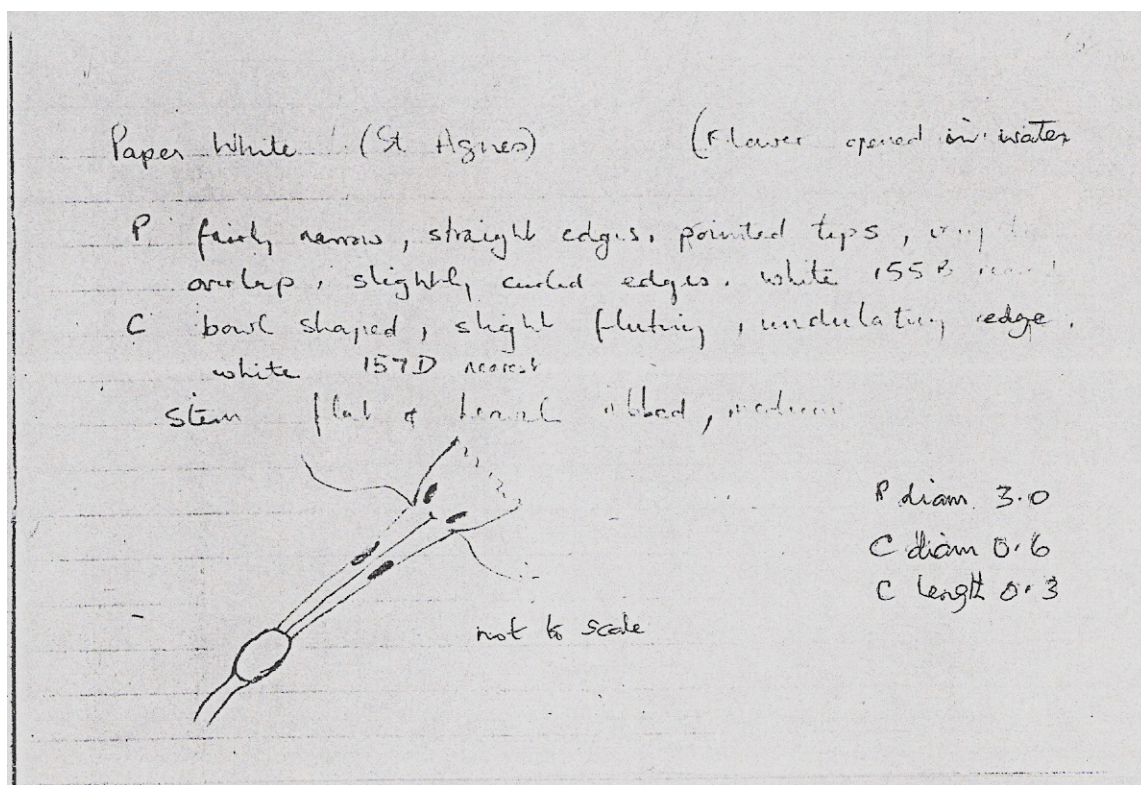 Paper White (St Agnes) (Flower opened in water
P. fairly narrow, straight edges, pointed tips, very
overlap, slightly curled edges. white 155 B
C bowl shaped, slight fluting, undulating edge.
white 157D nearest
Stem flat & ribbed, medium
P diam 3.0
C diam 0.6
C length 0.3
not to scale